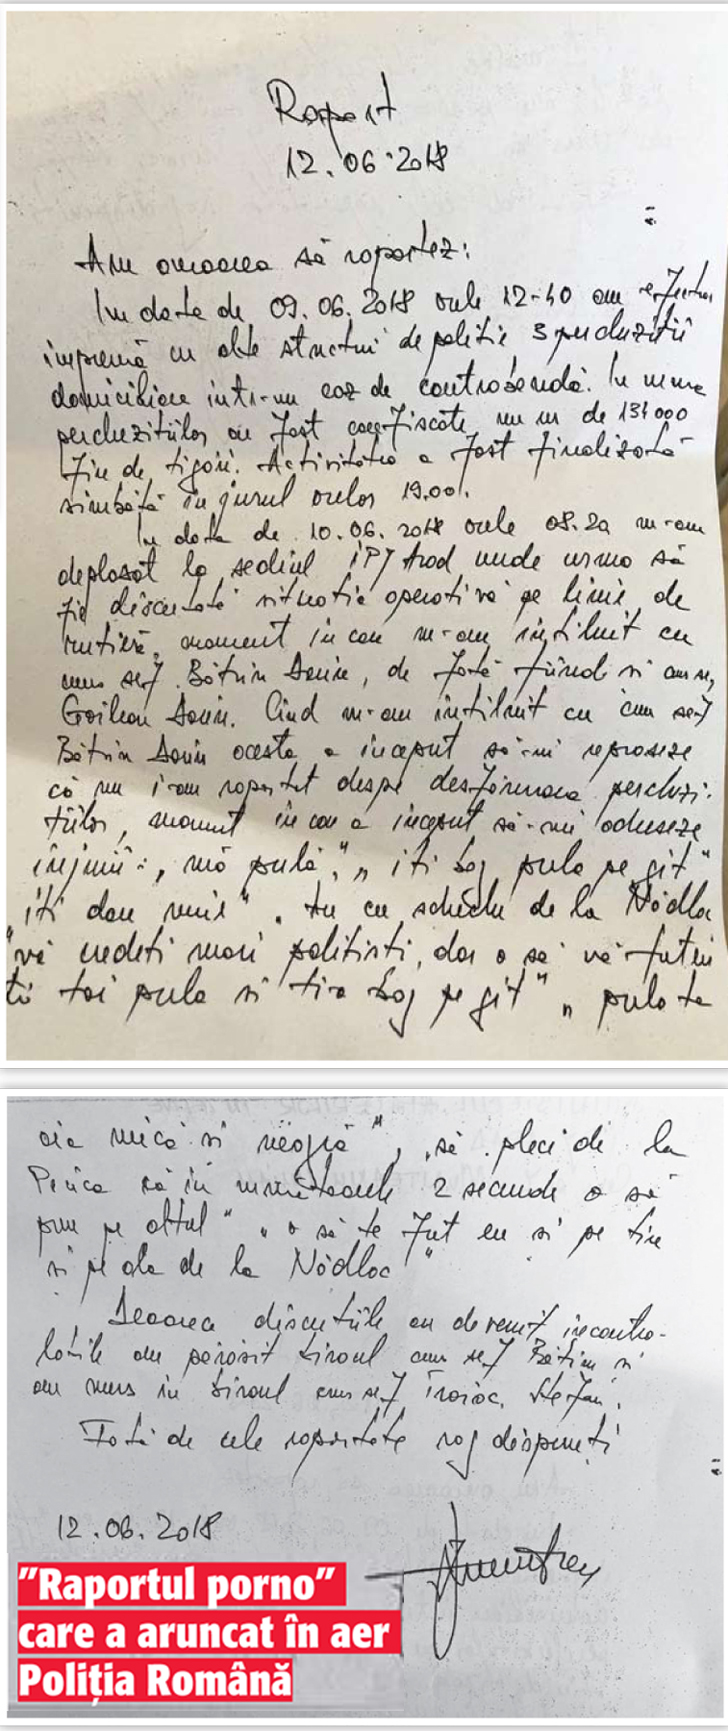 Raport
12.06.2018
Am onoarea să raportez:
În data de 09.06.2018 orele 12-40 am efectuat
împreună cu alte structuri de poliție 3 percheziții
domiciliare într-un caz de contrabandă. În urma
perchezițiilor au fost confiscate un nr de 134000
fire de țigări. Activitatea a fost finalizată
simbătă în jurul orelor 19.00.
În data de 10.06.2018 orele 08.20 m-am
deplasat la sediul IPJ Arad unde urma să
fie discutată situația operativă pe linie de
rutieră, moment în care m-am întîlnit cu
cms șef Bătrîn Sorin, de față fiind și cms
Goilean Sorin. Cînd m-am întîlnit cu cms șef
Bătrîn Sorin acesta a început să-mi reproșeze
că nu i-am raportat despre desfășurarea perchezi-
țiilor, moment în care a început să-mi aduseze
injurii: „mă pulă", „iti bag pula pe gît"
iti dau muie". tu cu schiclu de la Nădlac
"vă credeti mari politisti, dar o să vă futeu
tă tai pula si tiro bag pe gît" „pula ta
aia mică si neagră", „să pleci de la
Penca că în următoarele 2 secunde o să
pun pe altul" „o să te fut eu si pe tine
si pe ala de la Nădlac"
Deoarece discuțiile au devenit incontro-
labile am părăsit biroul cms șef Bătrîn si
am mers în biroul cms șef Troiac Ștefan.
Față de cele raportate rog dispuneți
12.06.2018
"Raportul porno"
care a aruncat în aer
Poliția Română